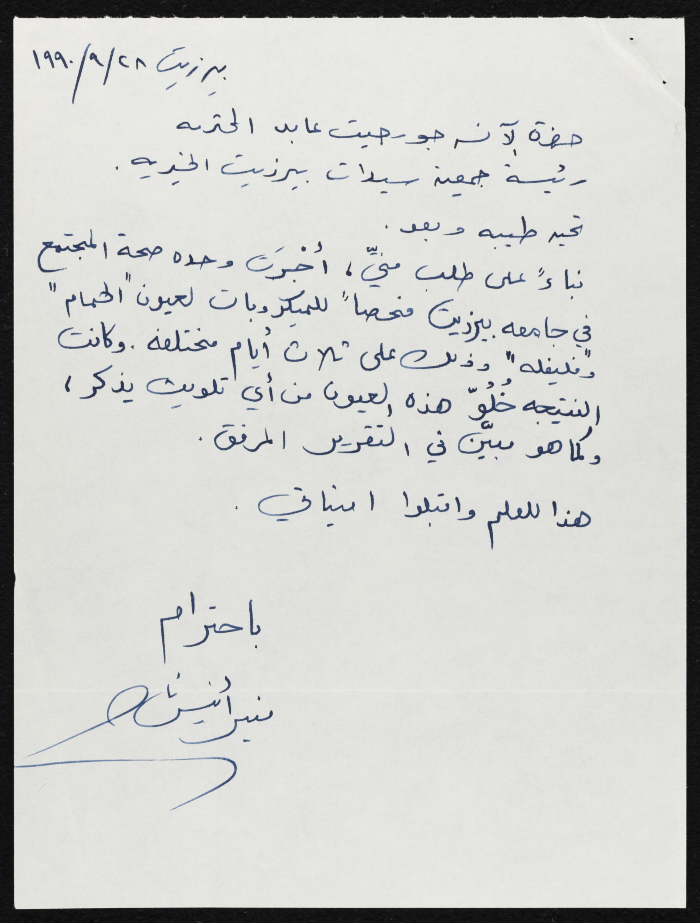 بيرزيت ٢٨/٩/١٩٩٠
حضرة الآنسه جورجيت عابد المحترمه
رئيسة جمعية سيدات بيرزيت الخيريه .
تحيه طيبه وبعد .
بناءً على طلب منيّ ، أُجْرَت وحده صحة المجتمع
في جامعه بيرزيت فحصاً للميكروبات لعيون "الحمام"
و"فليفله" وذلك على ثلاث أيام مختلفه . وكانت
النتيجه خُلُوّ هذه العيون من أي تلويث يذكر ،
وكما هو مبيّن في التقرير المرفق .
هذا للعلم واقبلوا امنياتي .
باحترام